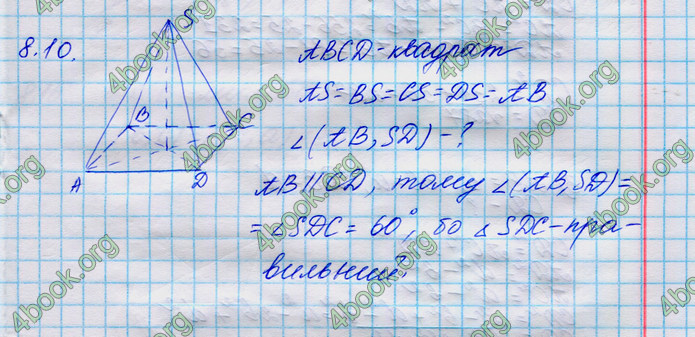 8.10.
S
B
C
A
D
ABCD - квадрат
AS = BS = CS = DS = AB
∠(AB, SD) - ?
AB || CD, тому ∠(AB, SD) =
= ∠SDC = 60°, бо △ SDC - пра-
вильний.
4book.org
4book.org
4book.org
4book.org
4book.org
4book.org
4book.org
4book.org
4book.org
4book.org
4book.org